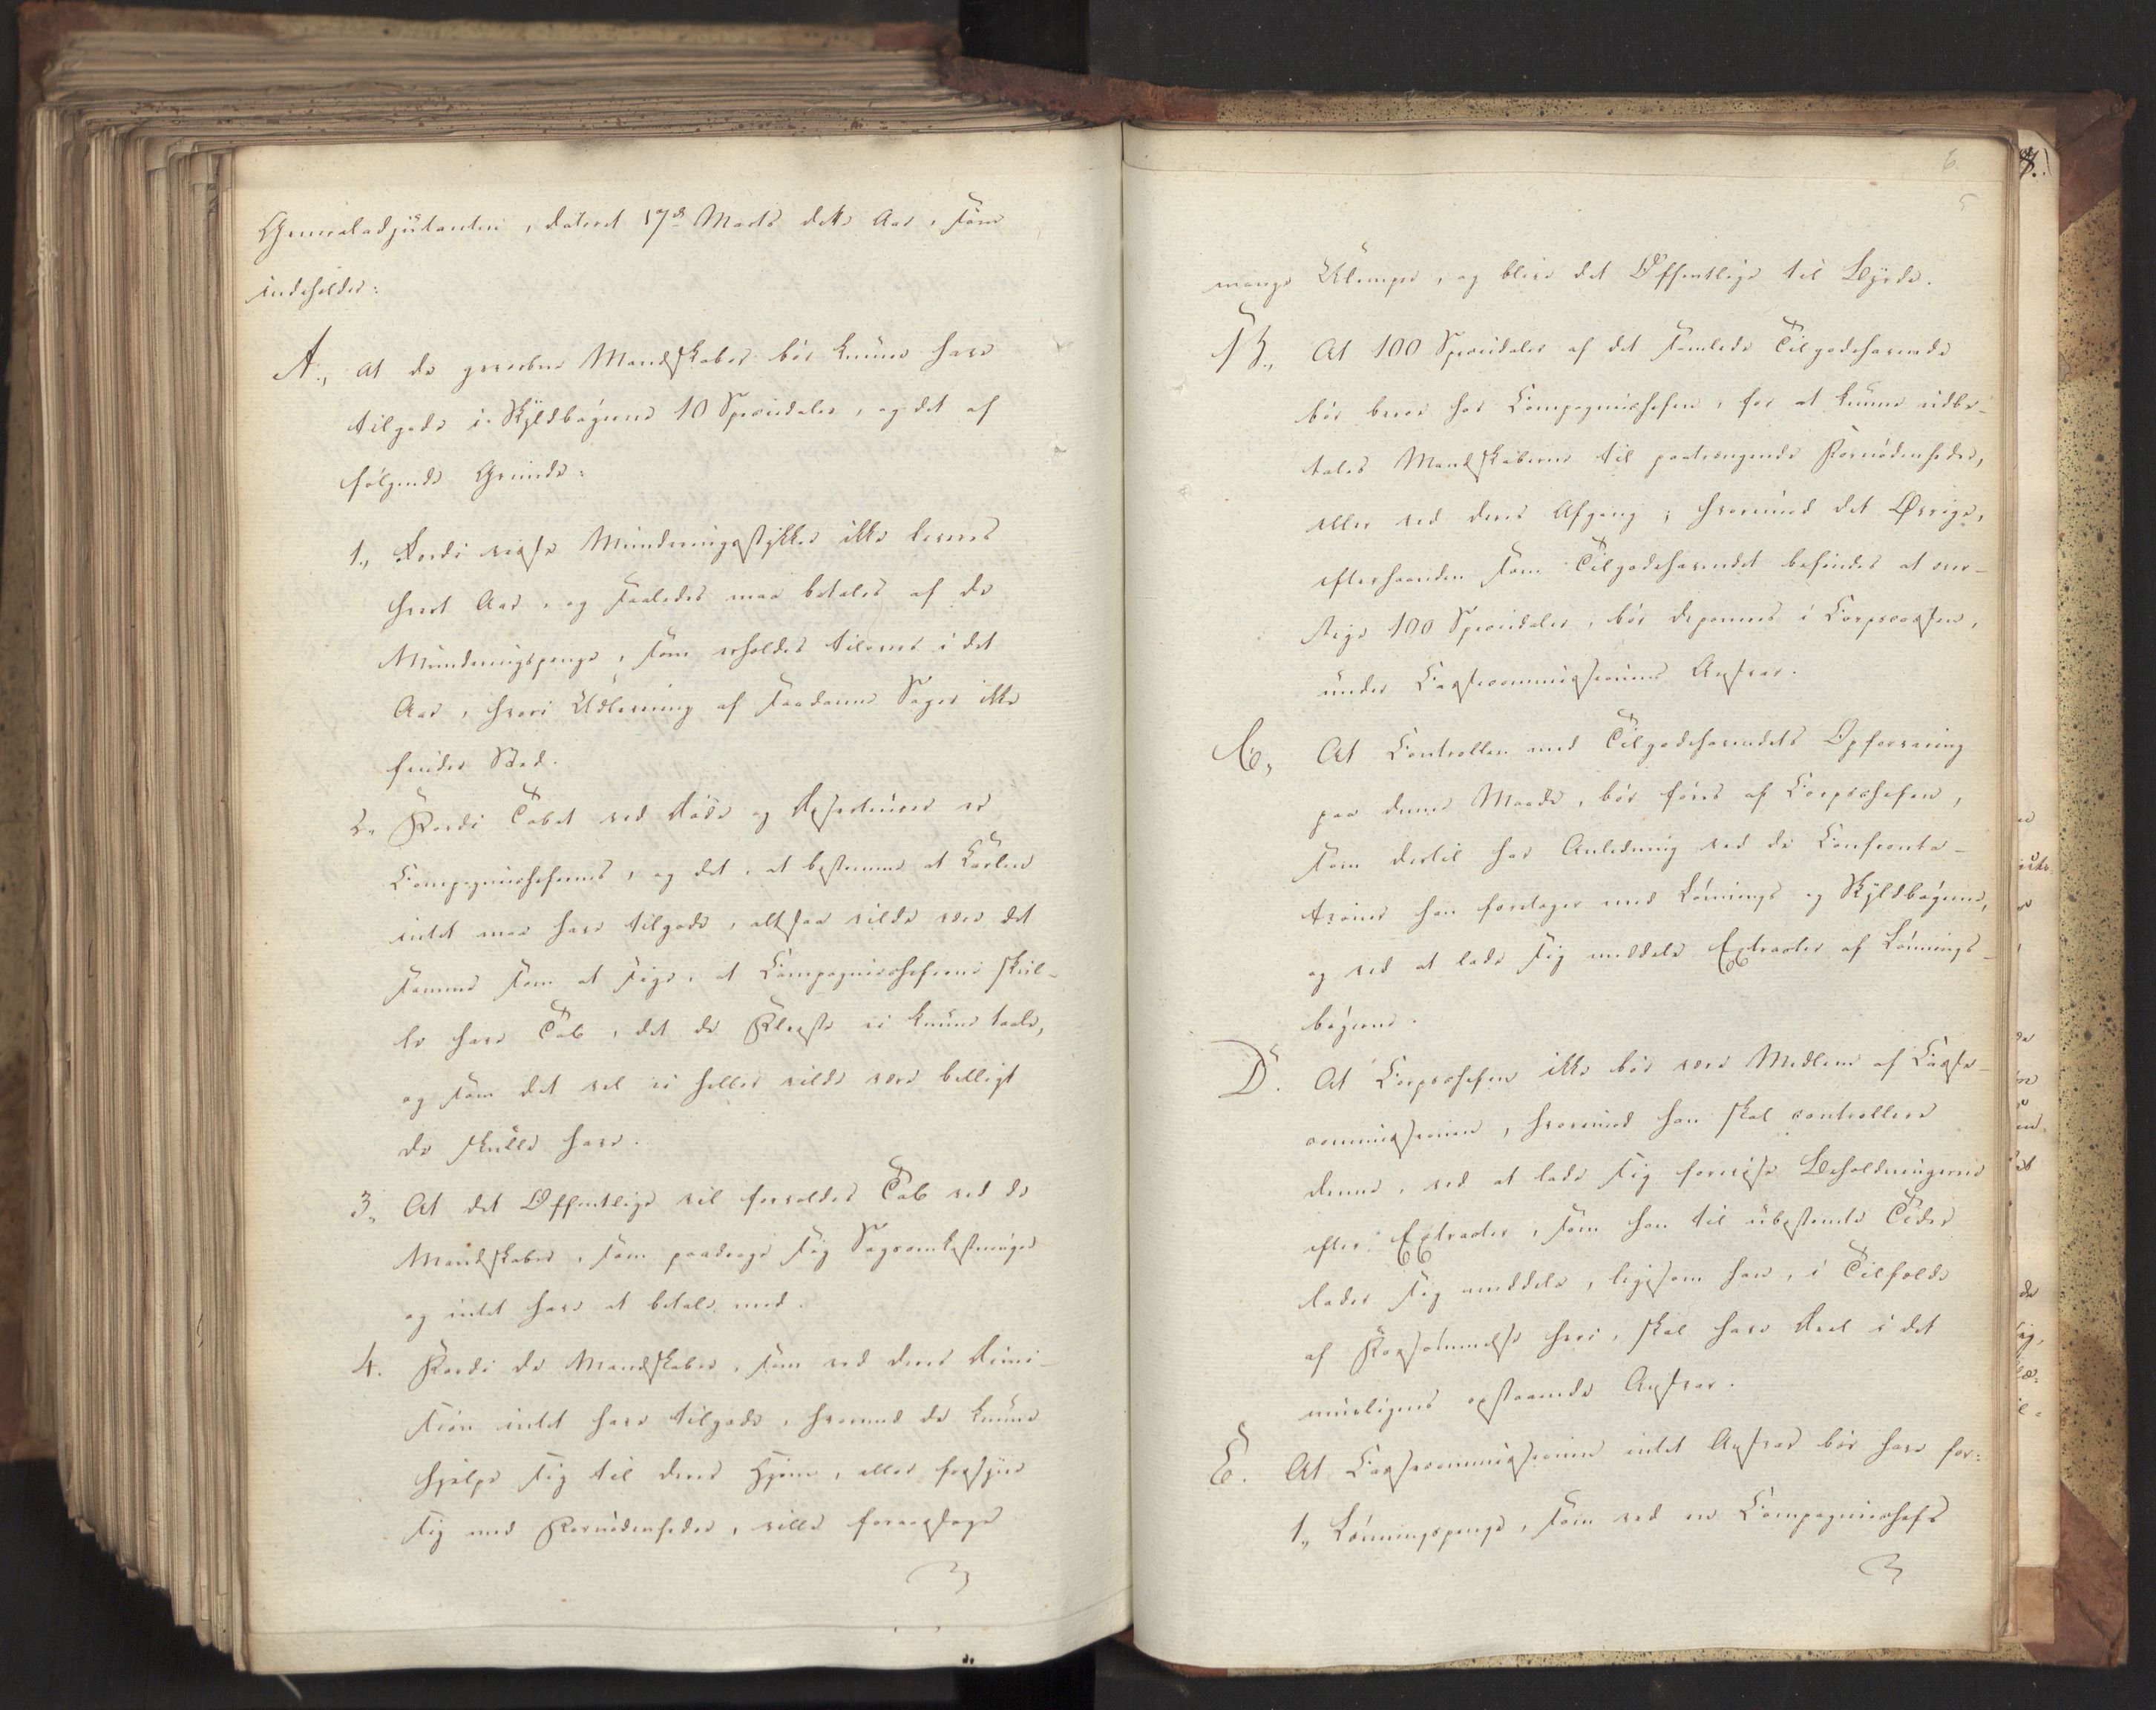 Generaladjutanten, dateret 17de Marts dette Aar, som
indeholder:
A., at de gevorbne Mandskaber bör kunne have
tilgode i Skyldbögerne 10 Speciedaler, og det af
fölgende Grunde:
1., Fordi visse Munderingsstykker ikke leveres
hvert Aar, og saaledes maa betales af de
Munderingspenge, som erholdes tilovers i det
Aar, hvori Udlevering af saadanne Sager ikke
finder Sted.
2., Fordi Tabet ved Döde og Deserteurer er
Compagniechefernes, og det, at bestemme at Karlen
intet maa have tilgode, altsaa vilde være det
samme som at sige, at Compagniecheferne skul-
le have Tab, det de Fleeste ei kunne taale,
og som det vel ei heller vilde være billigt
de skulle have.
3., At det Offentlige vil forvoldes Tab ved de
Mandskaber, som paadrage sig Sagsomkostninger
og intet have at betale med.
4. Fordi de Mandskaber, som ved deres Dimi-
sion intet have tilgode, hvormed de kunne
hjelpe sig til deres Hjem, eller forsyne
sig med Fornödenheder, ville foraarsage
6.
5
mange Ulemper, og blive det Offentlige til Byrde.
B., At 100 Speciedaler af det samlede Tilgodehavende
bör beroe hos Compagniechefen, for at kunne udbe-
tales Mandskaberne til paatrængende Fornödenheder,
eller ved deres Afgang; hvorimod det Övrige,
efterhaanden som Tilgodehavendet befindes at over-
stige 100 Speciedaler, bör deponeres i Corpscassen,
under Cassecommissionens Ansvar.
C., At Controllen med Tilgodehavendets Opbevaring
paa denne Maade, bör föres af Corpschefen,
som dertil har Anledning ved de Confronta-
tioner han foretager med Lönnings og Skyldbögerne,
og ved at lade sig meddele Extracter af Lönnings-
bögerne.
D. At Corpschefen ikke bör være Medlem af Casse-
commissionen, hvorimod han skal controllere
denne, ved at lade sig forevise Beholdningerne
efter Extracter, som han til ubestemte Tider
lader sig meddele, ligesom han, i Tilfælde
af Forsömmelse heri, skal have Deel i det
mueligens opstaaende Ansvar.
E. At Cassecommissionen intet Ansvar bör have for:
1., Lönningspenge, som ved en Compagniechefs